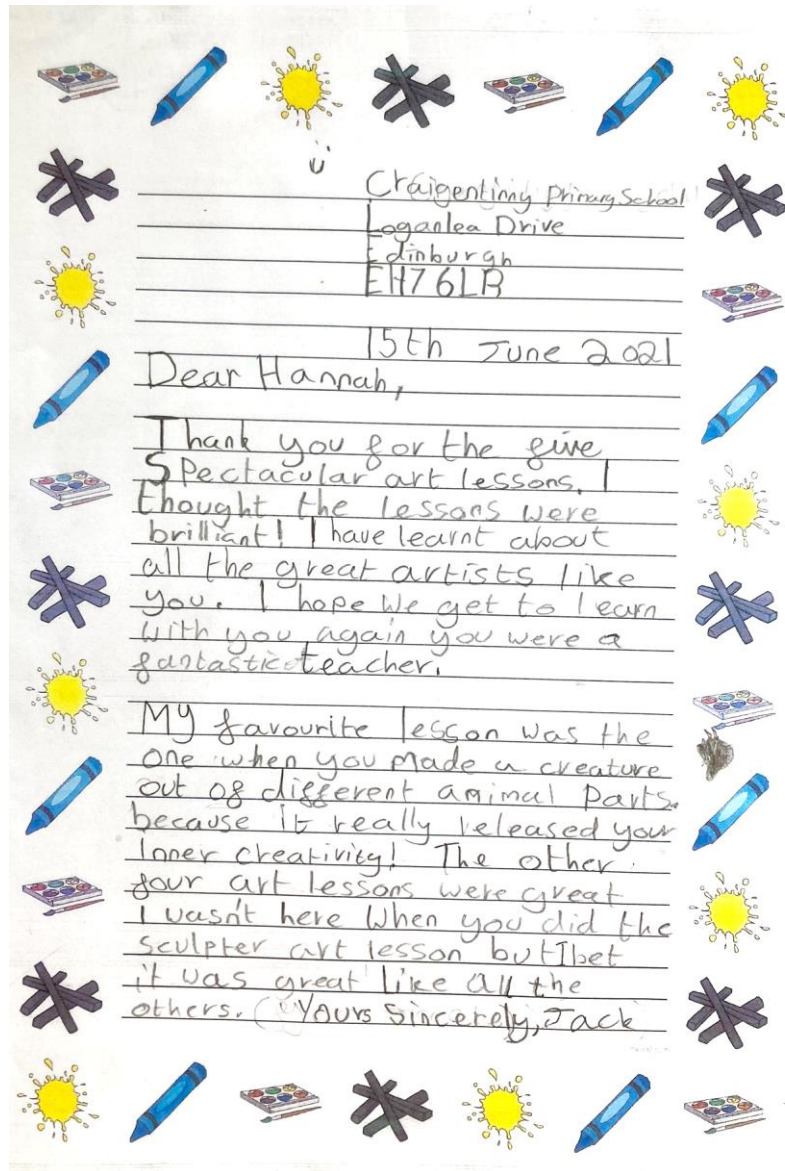 Craigentinny Primary School
Loganlea Drive
Edinburgh
EH7 6LB
15th June 2021
Dear Hannah,
Thank you for the five
Spectacular art lessons. I
thought the lessons were
brilliant! I have learnt about
all the great artists like
you. I hope we get to learn
with you again you were a
fantastic teacher.
My favourite lesson was the
one when you made a creature
out of different animal parts.
because it really released your
inner creativity! The other
four art lessons were great
I wasn't here when you did the
sculpter art lesson but I bet
it was great like all the
others. Yours Sincerely, Jack